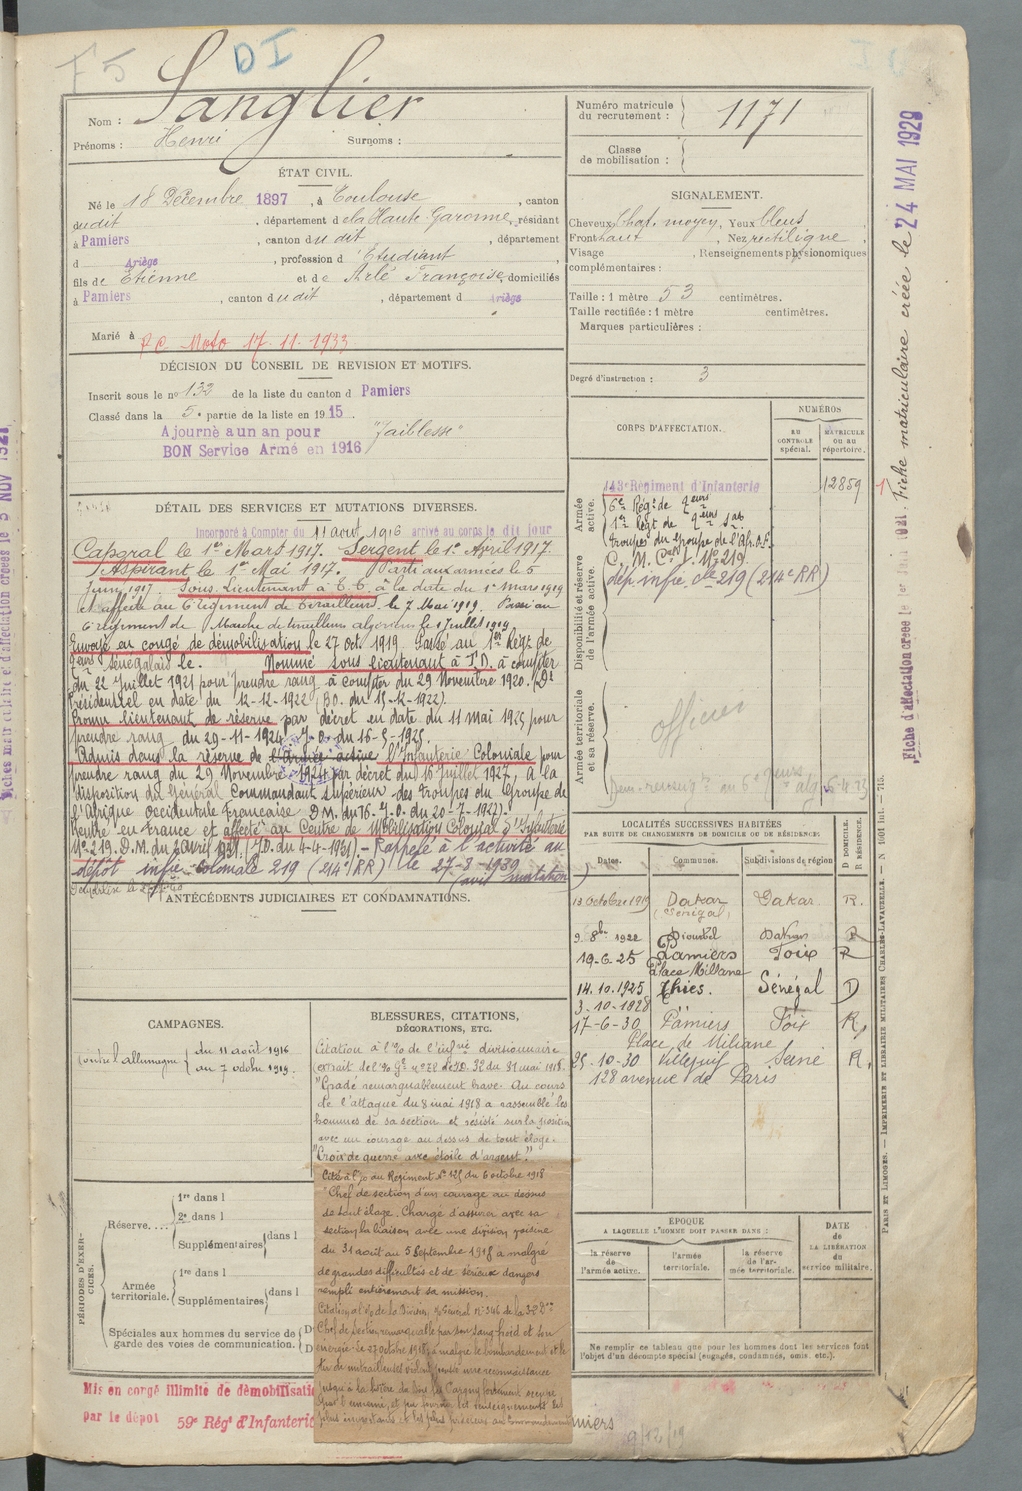 F5
DI
Nom : Sanglier
Prénoms : Henri Surnoms :
Numéro matricule du recrutement : 1171
Classe de mobilisation :
ÉTAT CIVIL.
Né le 18 Décembre 1897, à Toulouse, canton
dudit, département de la Haute Garonne, résidant
à Pamiers, canton dudit, département
d Ariège, profession d'Etudiant
fils de Etienne et de Arlé Françoise, domiciliés
à Pamiers, canton dudit, département d Ariège
Marié à
P.C. Moto 17-11-1933
SIGNALEMENT.
Cheveux Chat. moyen, Yeux bleus
Front haut, Nez rectiligne,
Visage , Renseignements physionomiques
complémentaires :
Taille : 1 mètre 53 centimètres.
Taille rectifiée : 1 mètre centimètres.
Marques particulières :
Degré d'instruction : 3
DÉCISION DU CONSEIL DE REVISION ET MOTIFS.
Inscrit sous le no 132 de la liste du canton d Pamiers
Classé dans la 5e partie de la liste en 1915.
Ajourné à un an pour "faiblesse"
BON Service Armé en 1916
CORPS D'AFFECTATION.
NUMÉROS
AU CONTRÔLE spécial.
MATRICULE OU AU répertoire.
Armée active.
143e Régiment d'Infanterie 12859
Disponibilité et réserve de l'armée active.
C. M. Cal I. No 219
dép infie cle 219 (214e RR)
Armée territoriale et sa réserve.
officier
DÉTAIL DES SERVICES ET MUTATIONS DIVERSES.
Incorporé à Compter du 11 aout 1916 arrivé au corps le dit jour
Caporal le 1er Mars 1917. Sergent le 1er Avril 1917.
Aspirant le 1er Mai 1917. Parti aux armées le 5
Juin 1917. Sous Lieutenant à T.T. à la date du 1er mars 1919
et affecté au 6 Régiment de Tirailleurs le 7 Mai 1919. Passé au
6 régiment de Marche de tirailleurs algériens le 1 Juillet 1919
Envoyé en congé de démobilisation le 27 Oct. 1919. Passé au 1er Régt de
Sénégalais le. Nommé sous lieutenant à T.D. à compter
du 22 Juillet 1921 pour prendre rang à compter du 29 Novembre 1920. (Dt
Présidentiel en date du 12-12-1922 (BO. du 15-12-1922).
Promu lieutenant de réserve par décret en date du 11 mai 1925 pour
prendre rang du 29-11-1924 J.O. du 16-5-1925.
Admis dans la réserve de l'Armée active l'Infanterie Coloniale pour
prendre rang du 29 Novembre 1924 par décret du 16 Juillet 1927, A la
disposition du Général Commandant Supérieur des Troupes du Groupe de
l'Afrique Occidentale Française D.M. du 16. J.O. du 20-7-1927).
Rentré en France et affecté au Centre de Mobilisation Colonial d'Infanterie
No 219. D.M. du 2 Avril 1931. (J.O. du 4-4-1931) - Rappelé à l'activité au
dépôt infie coloniale 219 (214e RR) le 27-8-1939
(avis mutation)
ANTÉCÉDENTS JUDICIAIRES ET CONDAMNATIONS.
LOCALITÉS SUCCESSIVES HABITÉES
PAR SUITE DE CHANGEMENTS DE DOMICILE OU DE RÉSIDENCE.
Dates. Communes. Subdivisions de région D DOMICILE. R RÉSIDENCE.
13 Octobre 1919 Dakar (Sénégal) Dakar R.
9 8bre 1922 Diourbel Dakar R
19-6-25 Pamiers Place Millane Foix R
14.10.1925 Thiès. Sénégal D
3-10-1928
17-6-30 Pamiers Foix R
Place de Milliane
25-10-30 Villejuif Seine R.
128 avenue de Paris
CAMPAGNES.
Contre l'allemagne du 11 août 1916
au 7 octobre 1919.
BLESSURES, CITATIONS,
DÉCORATIONS, ETC.
Citation à l'o/ de l'infrie divisionnaire
extrait de l'o/ gl no 72 de l'I.D. 32 du 31 mai 1918.
"Gradé remarquablement brave. Au cours
de l'attaque du 8 mai 1918 a rassemblé les
hommes de sa section et résisté sur la position
avec un courage au dessus de tout éloge."
"Croix de guerre avec étoile d'argent."
Cité à l'o/ du Régiment No 125 du 6 octobre 1918
"Chef de section d'un courage au dessus
de tout éloge. Chargé d'assurer avec sa
section la liaison avec une division voisine
du 31 août au 5 Septembre 1918 a malgré
de grandes difficultés et de sérieux dangers
rempli entièrement sa mission.
Citation à l'o/ de la Division o/ Général no 346 de la 32 Don
Chef de section remarquable par son sang froid et son
énergie. Le 27 octobre 1918, a malgré le bombardement et le
tir de mitrailleuses violent poussé une reconnaissance
jusqu'à la lisière
PÉRIODES D'EXERCICES.
Réserve....
1re dans l
2e dans l
Supplémentaires dans l
Armée territoriale.
1re dans l
Supplémentaires dans l
Spéciales aux hommes du service de garde des voies de communication.
ÉPOQUE
A LAQUELLE L'HOMME DOIT PASSER DANS :
la réserve de l'armée active.
l'armée territoriale.
la réserve de l'armée territoriale.
DATE de LA LIBÉRATION du service militaire.
Ne remplir ce tableau que pour les hommes dont les services font
l'objet d'un décompte spécial (engagés, condamnés, omis, etc.).
Mis en congé illimité de démobilisati
par le dépôt 59e Régt d'Infanterie
miers
9/12/19
Fiche matriculaire créée le 24 MAI 1929
Fiche d'affectation créée le
PARIS ET LIMOGES. — IMPRIMERIE ET LIBRAIRIE MILITAIRES CHARLES-LAVAUZELLE. — N 1001 Int. — 715.